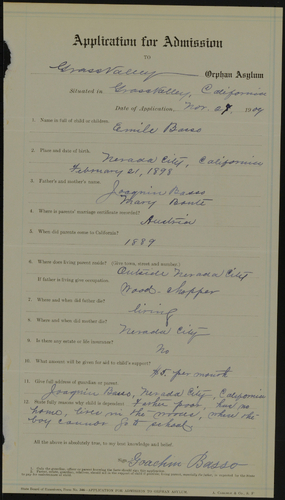 Application for Admission
TO
Grass Valley Orphan Asylum
Situated in Grass Valley, California
Date of Application, Nov. 29, 1904
1. Name in full of child or children.
Emile Basso
2. Place and date of birth.
Nevada City, California
February 21, 1898
3. Father's and mother's name.
Joaquin Basso
Mary
4. Where is parents' marriage certificate recorded?
Austria
5. When did parents come to California?
1889
6. Where does living parent reside? (Give town, street and number)
Outside Nevada City
If father is living give occupation.
Wood chopper
7. Where and when did father die?
living
8. Where and when did mother die?
Nevada City
9. Is there any estate or life insurance?
No
10. What amount will be given for aid to child's support?
$5 per month
11. Give full address of guardian or parent
Joaquin Basso, Nevada City, California
12. State fully reasons why child is dependent. Father poor, has no
home, lives in the woods, where the
boy cannot go to school
All the above is absolutely true, to my best knowledge and belief.
Sign Joachim Basso